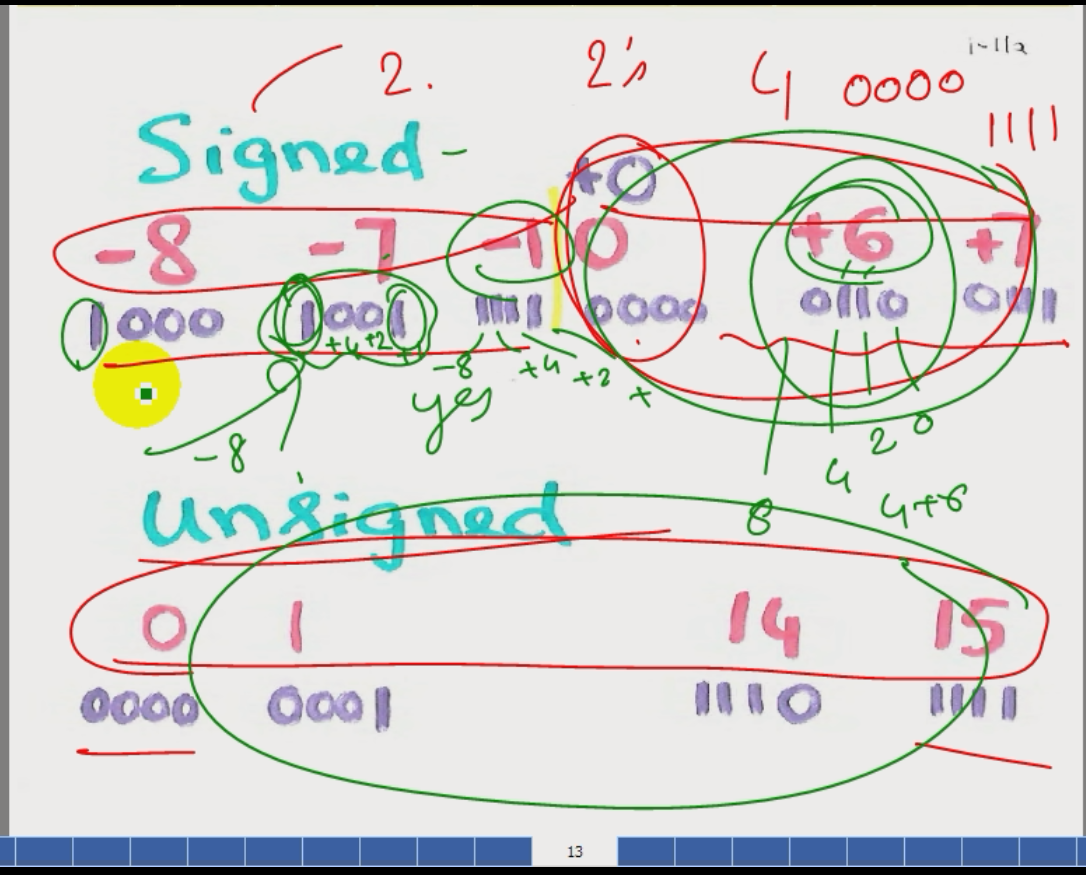 2. 2's 4 0000
1111
Signed- +0
-8 -7 -1 0 +6 +7
1000 1001 1111 0000 0110 0111
+4 +2 +1 -8 +4 +2 +
yes
-8 4 2 0
Unsigned 8 4+6
0 1 14 15
0000 0001 1110 1111
13